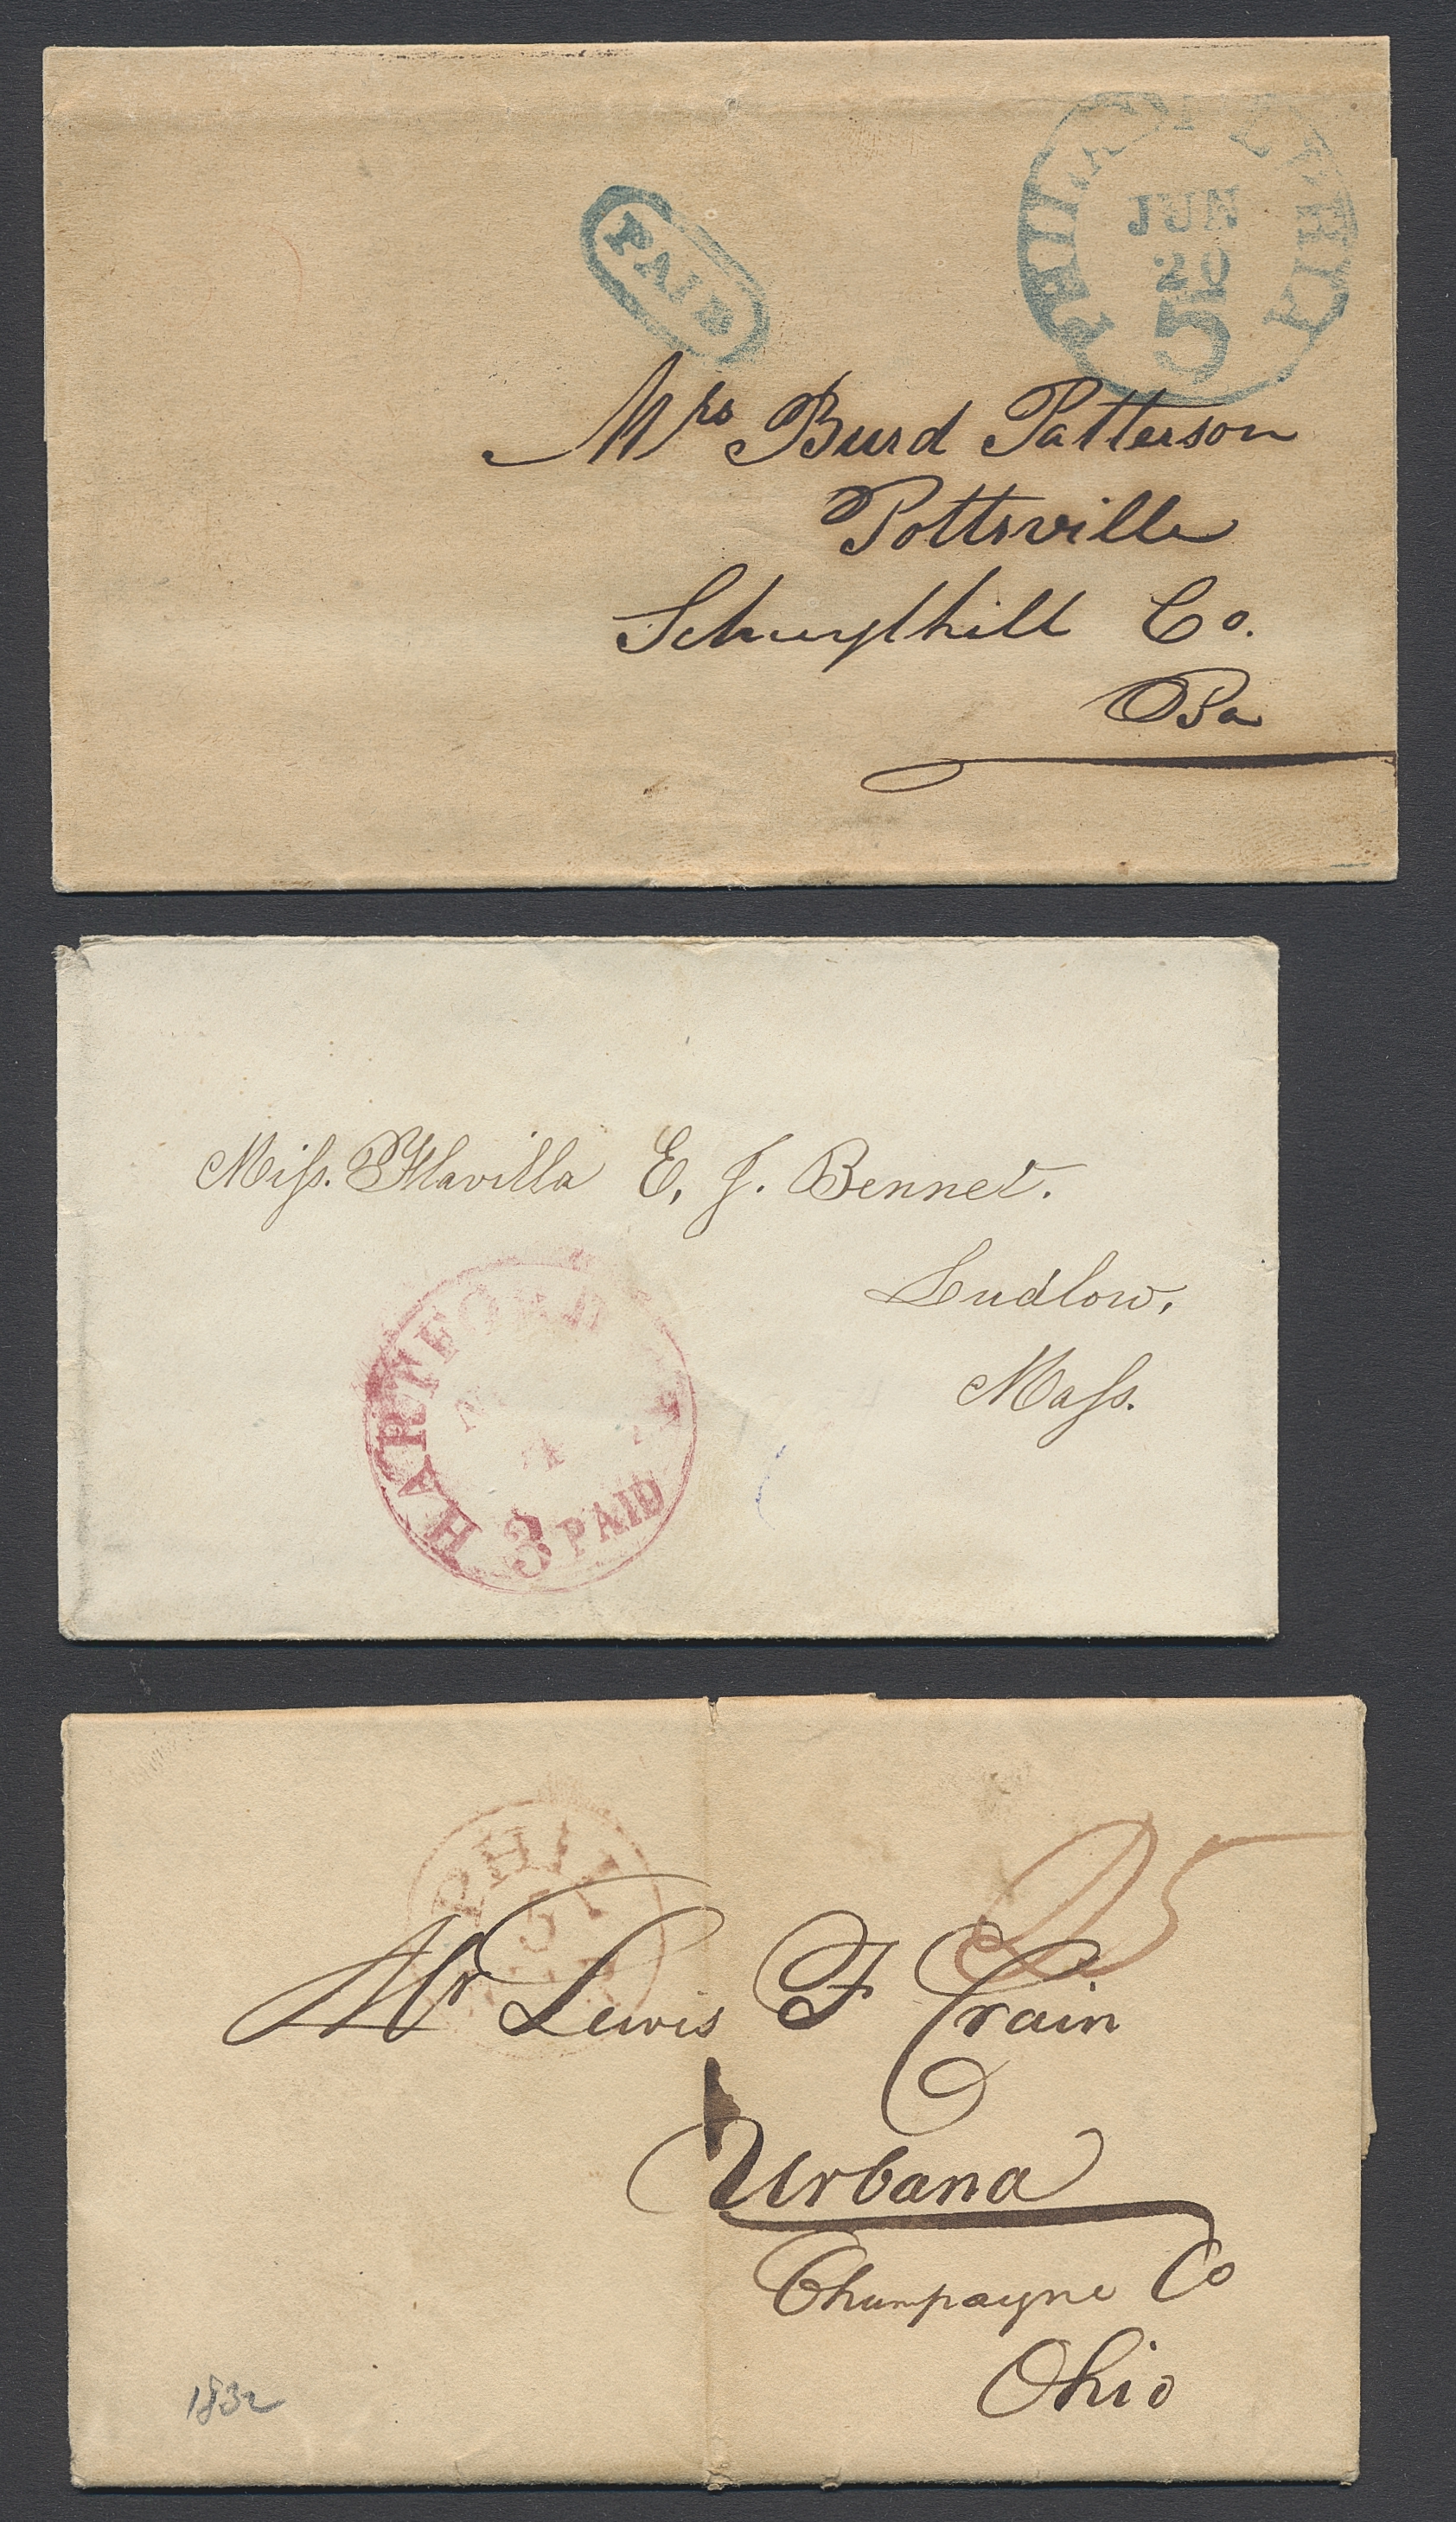 PAID
PHILADELPHIA
JUN
20
5
Mrs Burd Patterson
Pottsville
Schuylkill Co.
Pa
Miss. Flavilla E. J. Bennet.
Ludlow,
Mass.
HARTFORD
3 PAID
PHIL
25
Mr Lewis F Crain
Urbana
Champayne Co
Ohio
1832